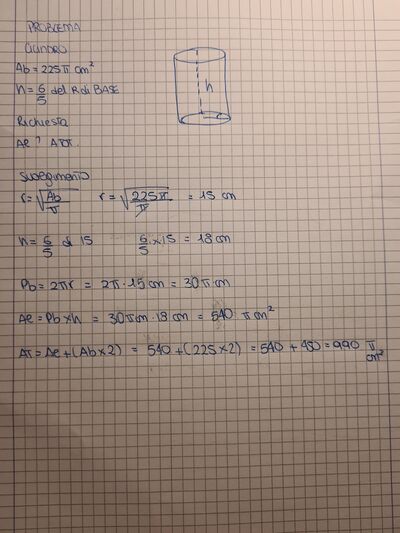 PROBLEMA
CILINDRO
Ab = 225 π cm²
h = 6/5 del R di BASE
h
Richiesta
Ae ? ATOT.
Svolgimento
r = √Ab/π r = √225π/π = 15 cm
h = 6/5 di 15 6/5 × 15 = 18 cm
Pb = 2πr = 2π · 15 cm = 30 π cm
Ae = Pb × h = 30 π cm · 18 cm = 540 π cm²
AT = Ae + (Ab × 2) = 540 + (225 × 2) = 540 + 450 = 990 π cm²